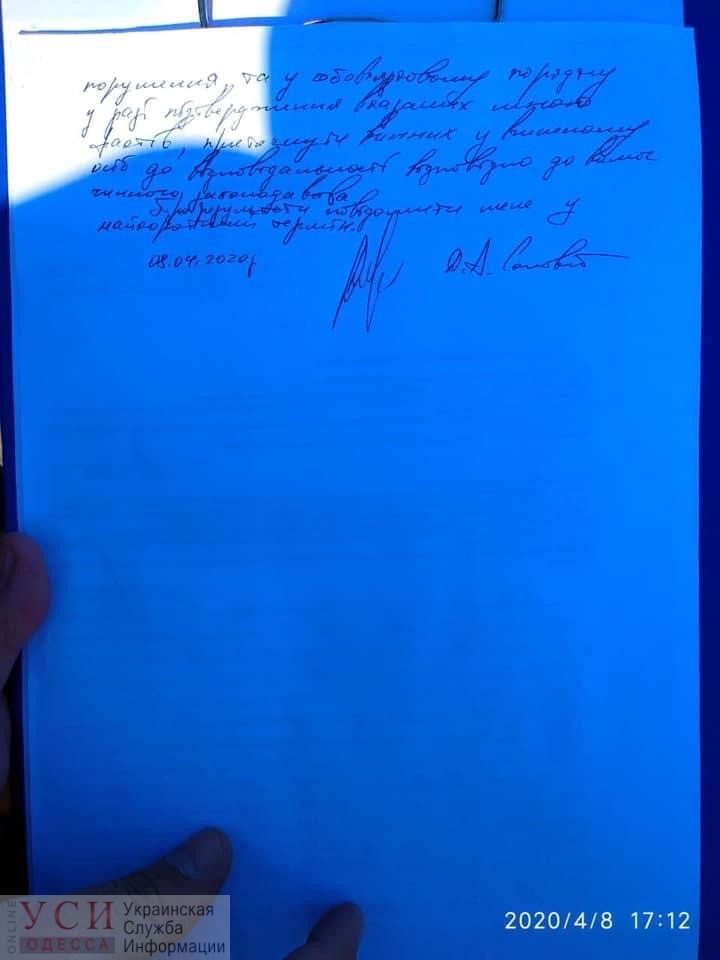 порушення, та у обов'язковому порядку
у разі підтвердження вказаних мною
фактів, притягнути винних у вчиненому
осіб до відповідальності відповідно до вимог
чинного законодавства
Про результати повідомити мене у
найкоротший термін.
08.04.2020р.
Д.А.
ONLINE
УСИ
ОДЕССА
Украинская
Служба
Информации
2020/4/8 17:12